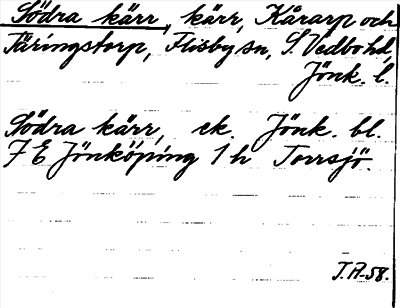 Södra kärr, kärr, Kårarp och
Täringstorp, Flisby sn, S. Vedbo hd,
Jönk. l.
Södra kärr, ek. Jönk. bl.
7 E Jönköping 1 h Torrsjö.
T.A-58.